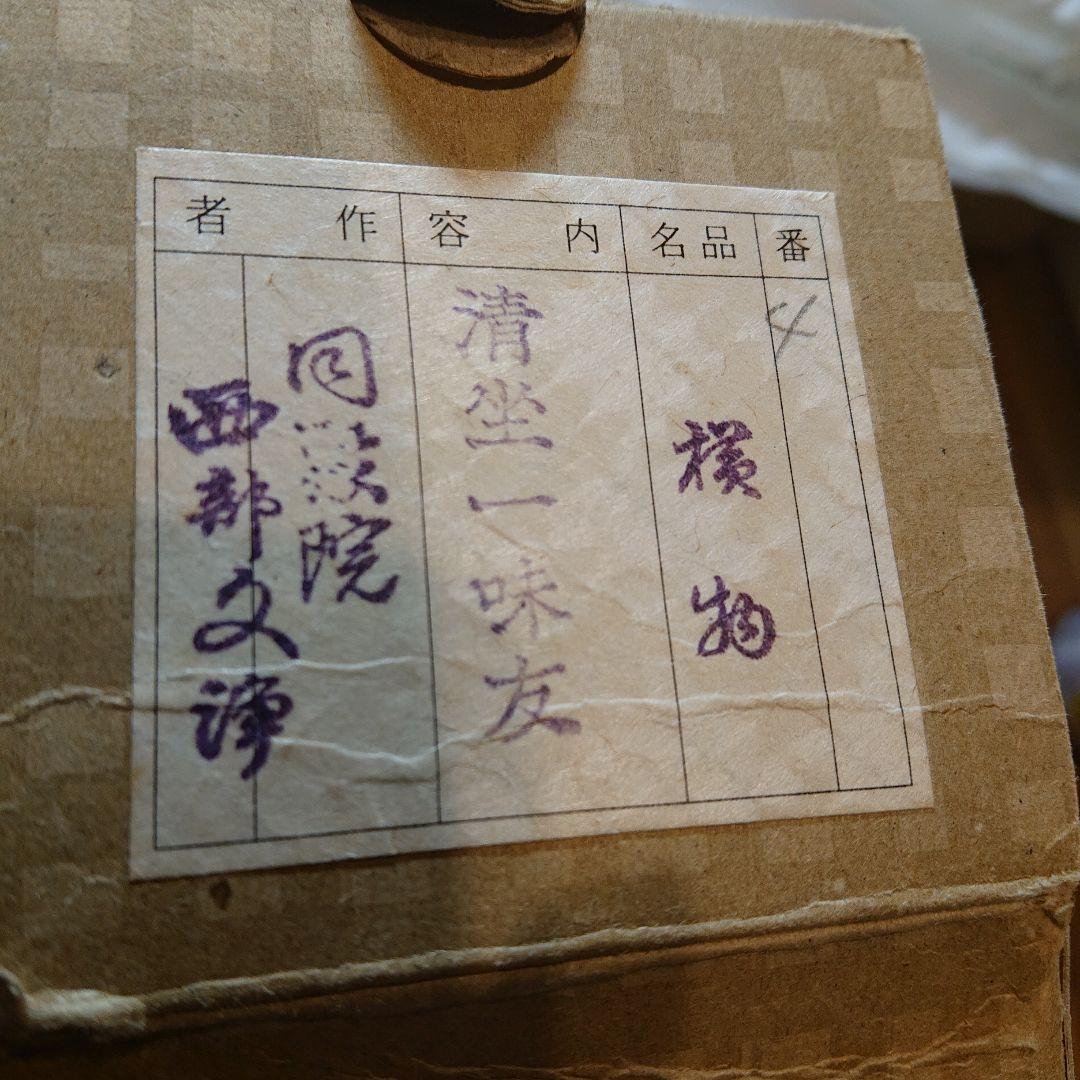 番
4
品名
横物
内容
清坐一味友
作者
同聚院
西部文淨